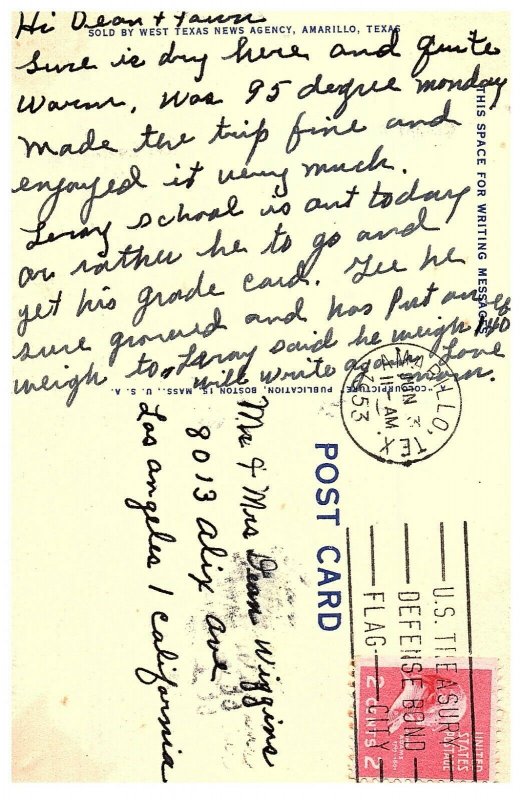 Hi Dean + Fawn
SOLD BY WEST TEXAS NEWS AGENCY, AMARILLO, TEXAS
Sure is dry here and quite
warm, was 95 degree monday
made the trip fine and
enjoyed it very much.
Leroy school is out today
or rather he to go and
get his grade card. Gee he
sure growed and has Put on
weight to. Leroy said he weigh 140
will write again. Love
mom.
THIS SPACE FOR WRITING MESSAGES
"COLOURPICTURE" PUBLICATION, BOSTON 15, MASS., U. S. A.
POST CARD
Mr & Mrs Dean Wiggins
8013 Alix Ave
Los angeles 1 California
AMARILLO, TEX.
JUN 3
11 - AM
1953
U.S. TREASURY
DEFENSE BOND
FLAG CITY
UNITED
STATES
POSTAGE
2 CENTS 2